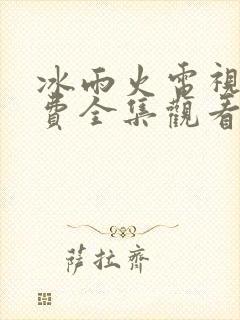 冰雨火雷視
費全集觀看
薩拉齊